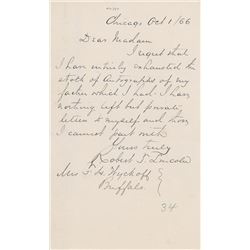 Chicago Oct 1/66
Dear Madam
I regret that
I have entirely exhausted the
stock of Autographs of my
father which I had. I have
nothing left but private
letters to myself and those
I cannot part with
Yours truly
Robert T. Lincoln
Mrs F. H. Wyckoff
Buffalo.
34